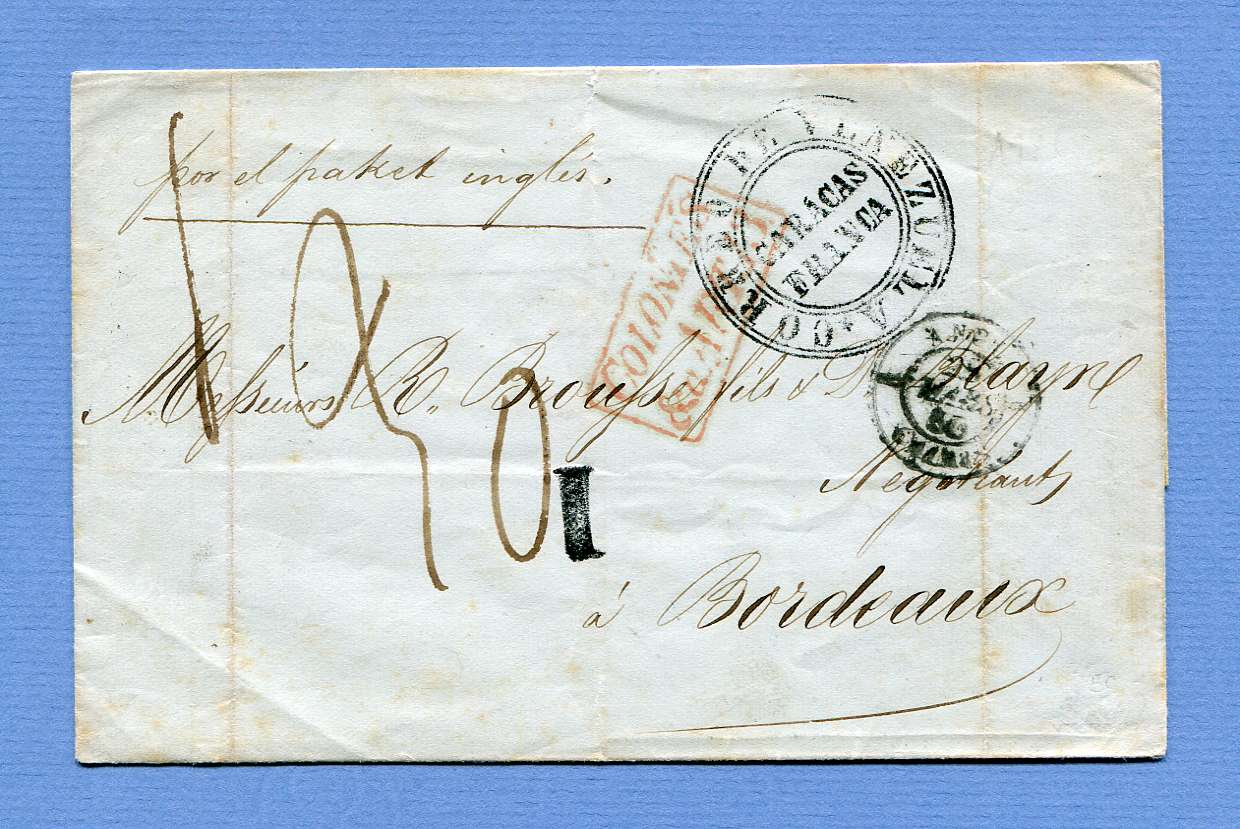 por el paket inglés.
CORREO DE VENEZUELA
CARACAS
FRANCA
COLONIES
&c. ART
Messieurs R. Brousse fils & D. Blayne
Negotiants
I
à Bordeaux